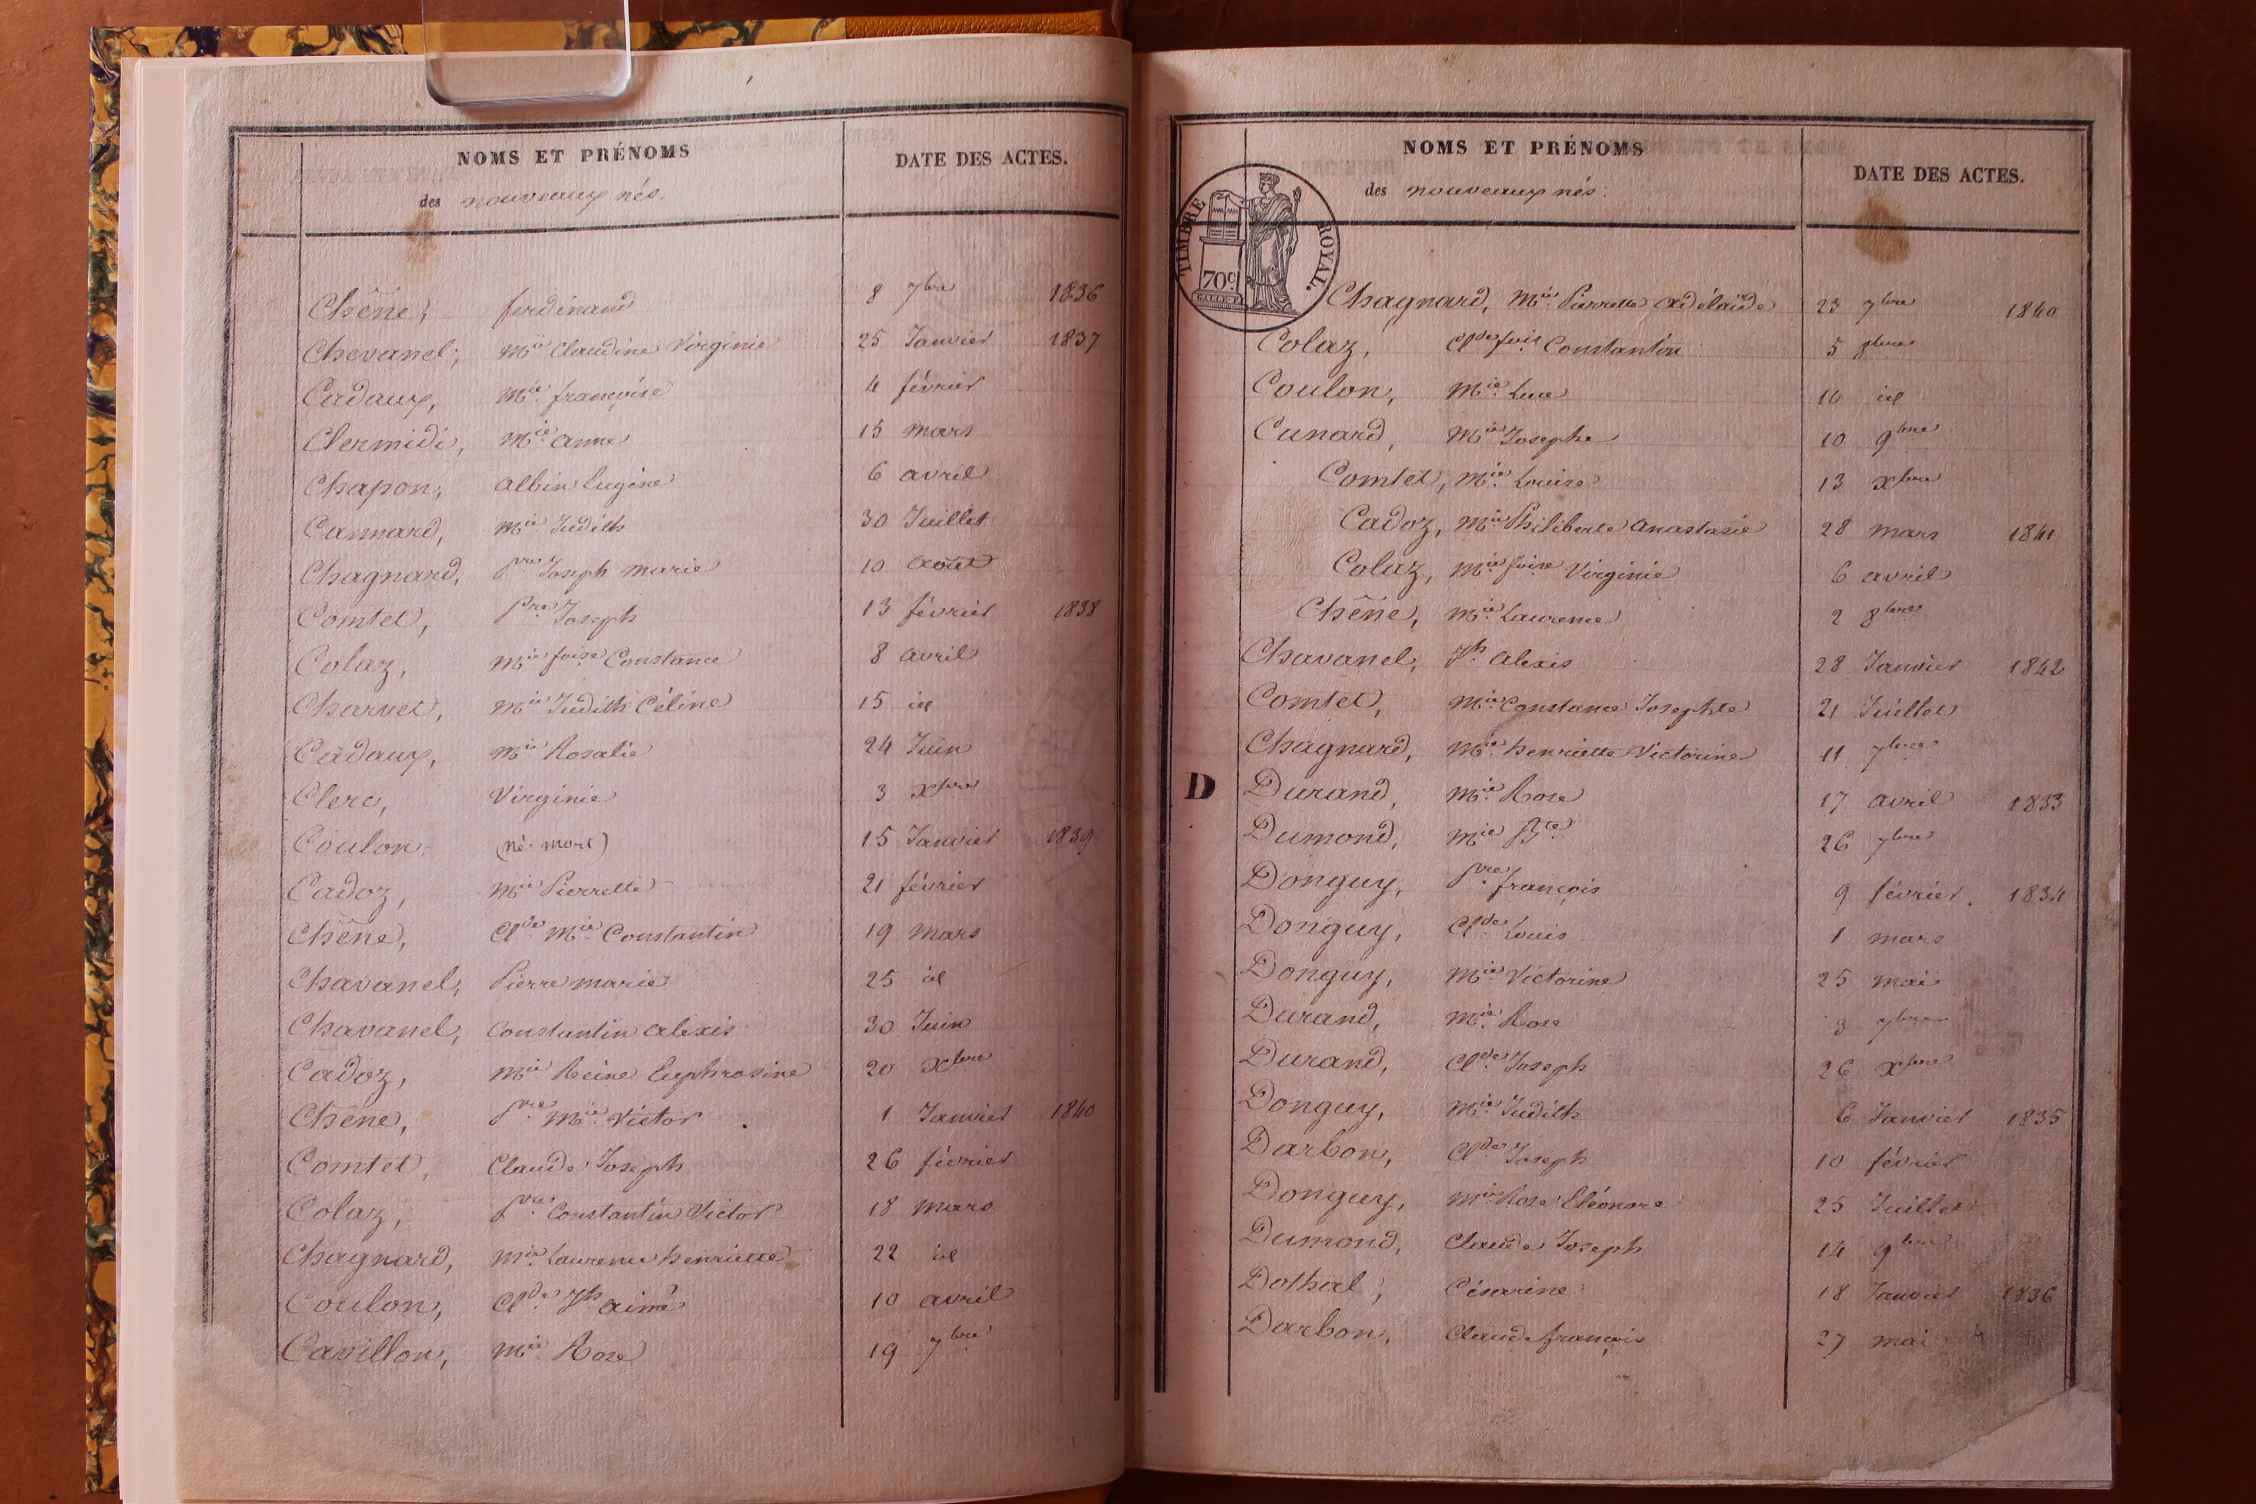 NOMS ET PRÉNOMS DATE DES ACTES.
des nouveaux nés.
Chêne, ferdinand 8 7bre 1836
Chevanel, Mie Claudine Virginie 25 Janvier 1837
Cadaux, Mie françoise 4 février
Clermidi, Mie anne 15 mars
Chapon, albin Eugène 6 avril
Cannard, Mie Judith 30 Juillet
Chagnard, pre Joseph marie 10 août
Comtet, pre Joseph 13 février 1838
Colaz, Mie foise Constance 8 avril
Charvet, Mie Judith Céline 15 id
Cadaux, Mie Rosalie 24 Juin
Clerc, Virginie 3 Xbre
Coulon (né mort) 15 Janvier 1839
Cadoz, Mie Pierrette 21 février
Chêne, Clde Mie Constantin 19 mars
Chavanel, Pierre marie 25 id
Chavanel, Constantin alexis 30 Juin
Cadoz, Mie Reine Euphrosine 20 Xbre
Chêne, pre Mie Victor 1 Janvier 1840
Comtet, Claude Joseph 26 février
Colaz, pre Constantin Victor 18 mars
Chagnard, Mie Laurence henriette 22 id
Coulon, Clde Jh aimé 10 avril
Cavillon, Mie Rose 19 7bre
NOMS ET PRÉNOMS DATE DES ACTES.
des nouveaux nés.
TIMBRE ROYAL.
70c
Chagnard, Mie Pierrette adélaïde 23 7bre 1840
Colaz, Clde fois Constantin 5 8bre
Coulon, Mie Luce 16 id
Cunard, Mie Josephe 10 9bre
Comtet, Mie Louise 13 Xbre
Cadoz, Mie Philiberte anastasie 28 mars 1841
Colaz, Mie foise Virginie 6 avril
Chêne, Mie Laurence 2 8bre
Chavanel, Jh alexis 28 Janvier 1842
Comtet, Mie Constance Josephte 21 Juillet
Chagnard, Mie henriette Victorine 11 7bre
D Durand, Mie Rose 17 avril 1833
Dumond, Mie 26 7bre
Donguy, pre françois 9 février 1834
Donguy, Clde Louis 1 mars
Donguy, Mie Victorine 25 mai
Durand, Mie Rose 3 7bre
Durand, Clde Joseph 26 Xbre
Donguy, Mie Judith 6 Janvier 1835
Darbon, Clde Joseph 10 février
Donguy, Mie Rose Eléonore 25 Juillet
Dumond, Claude Joseph 14 9bre
Dothal, Césarine 18 Janvier 1836
Darbon, Claude françois 27 mai